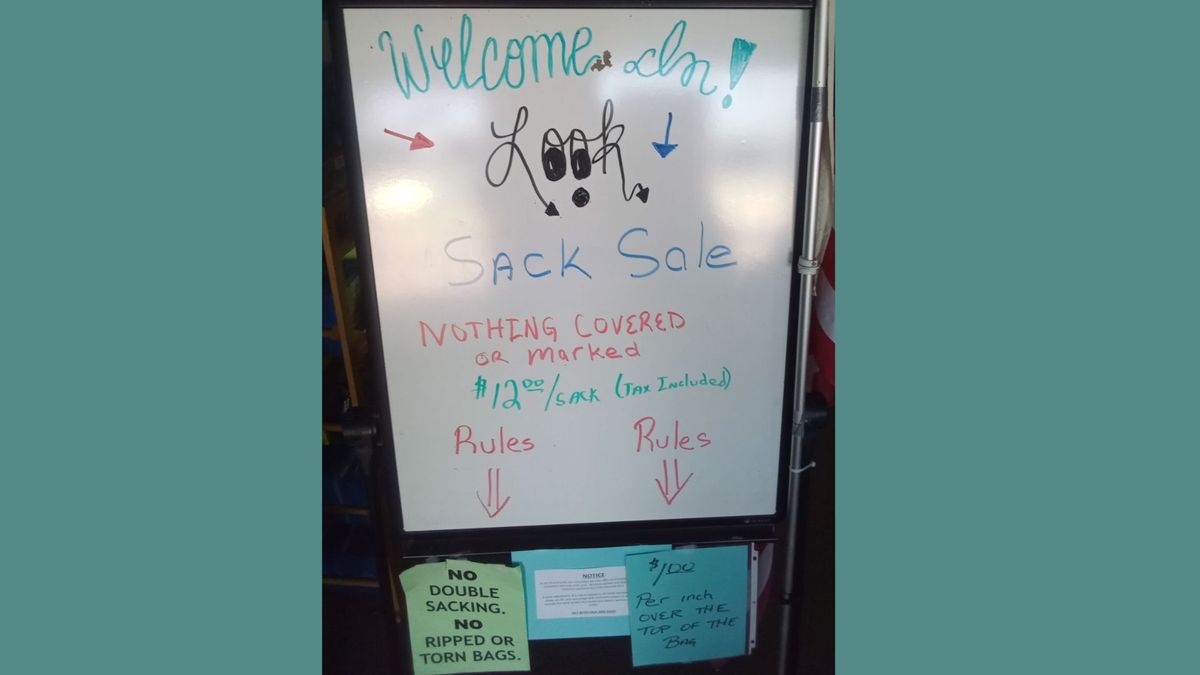 Welcome In!
Look
SACK Sale
NOTHING COVERED
OR marked
$12.00/SACK (TAX INCluded)
Rules Rules
NO
DOUBLE
SACKING.
NO
RIPPED OR
TORN BAGS.
NOTICE
$1.00
Per inch
OVER THE
TOP OF THE
BAG